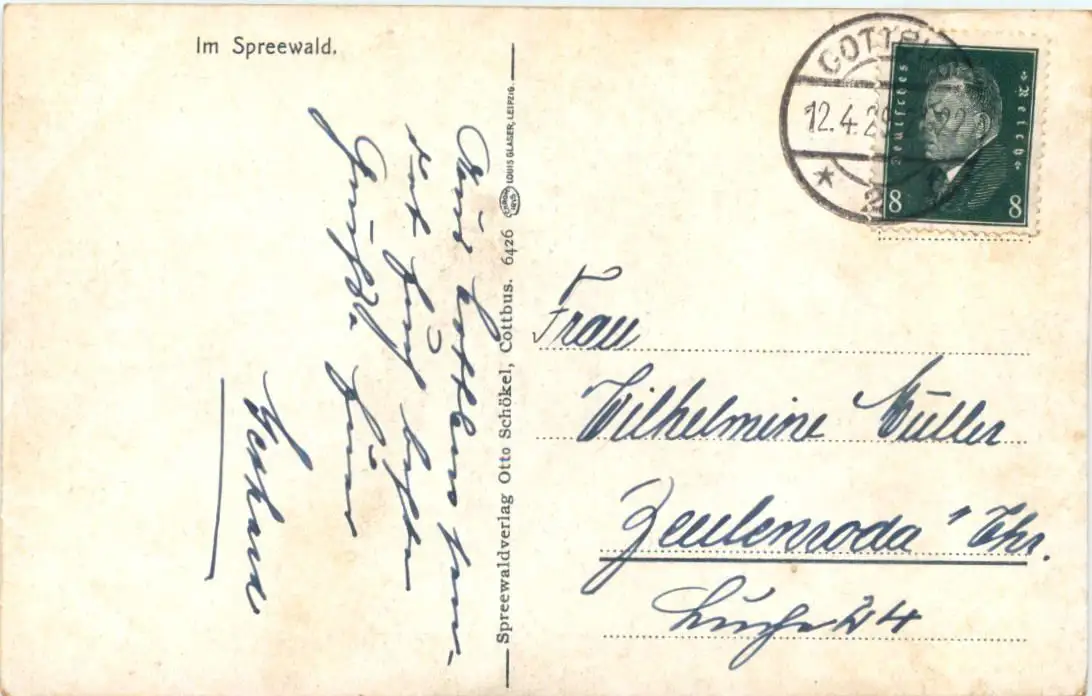 Im Spreewald.
Aus Cottbus sen-
det Euch beste
Grüße. Euer
Gerhard
Spreewaldverlag Otto Schökel, Cottbus. 6426
LOUIS GLASER, LEIPZIG.
COTTBUS
12.4.29
Deutsches Reich
8 8
Frau
Wilhelmine Müller
Zeulenroda Thr.